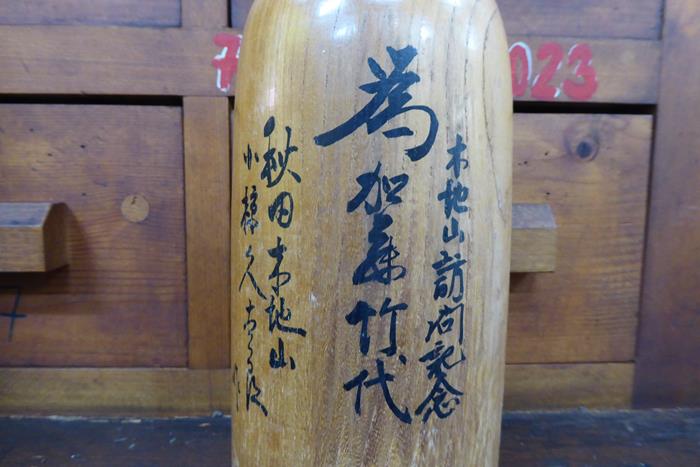 木地山訪問記念
為加藤竹代
秋田木地山
小椋久太郎
作
023
7